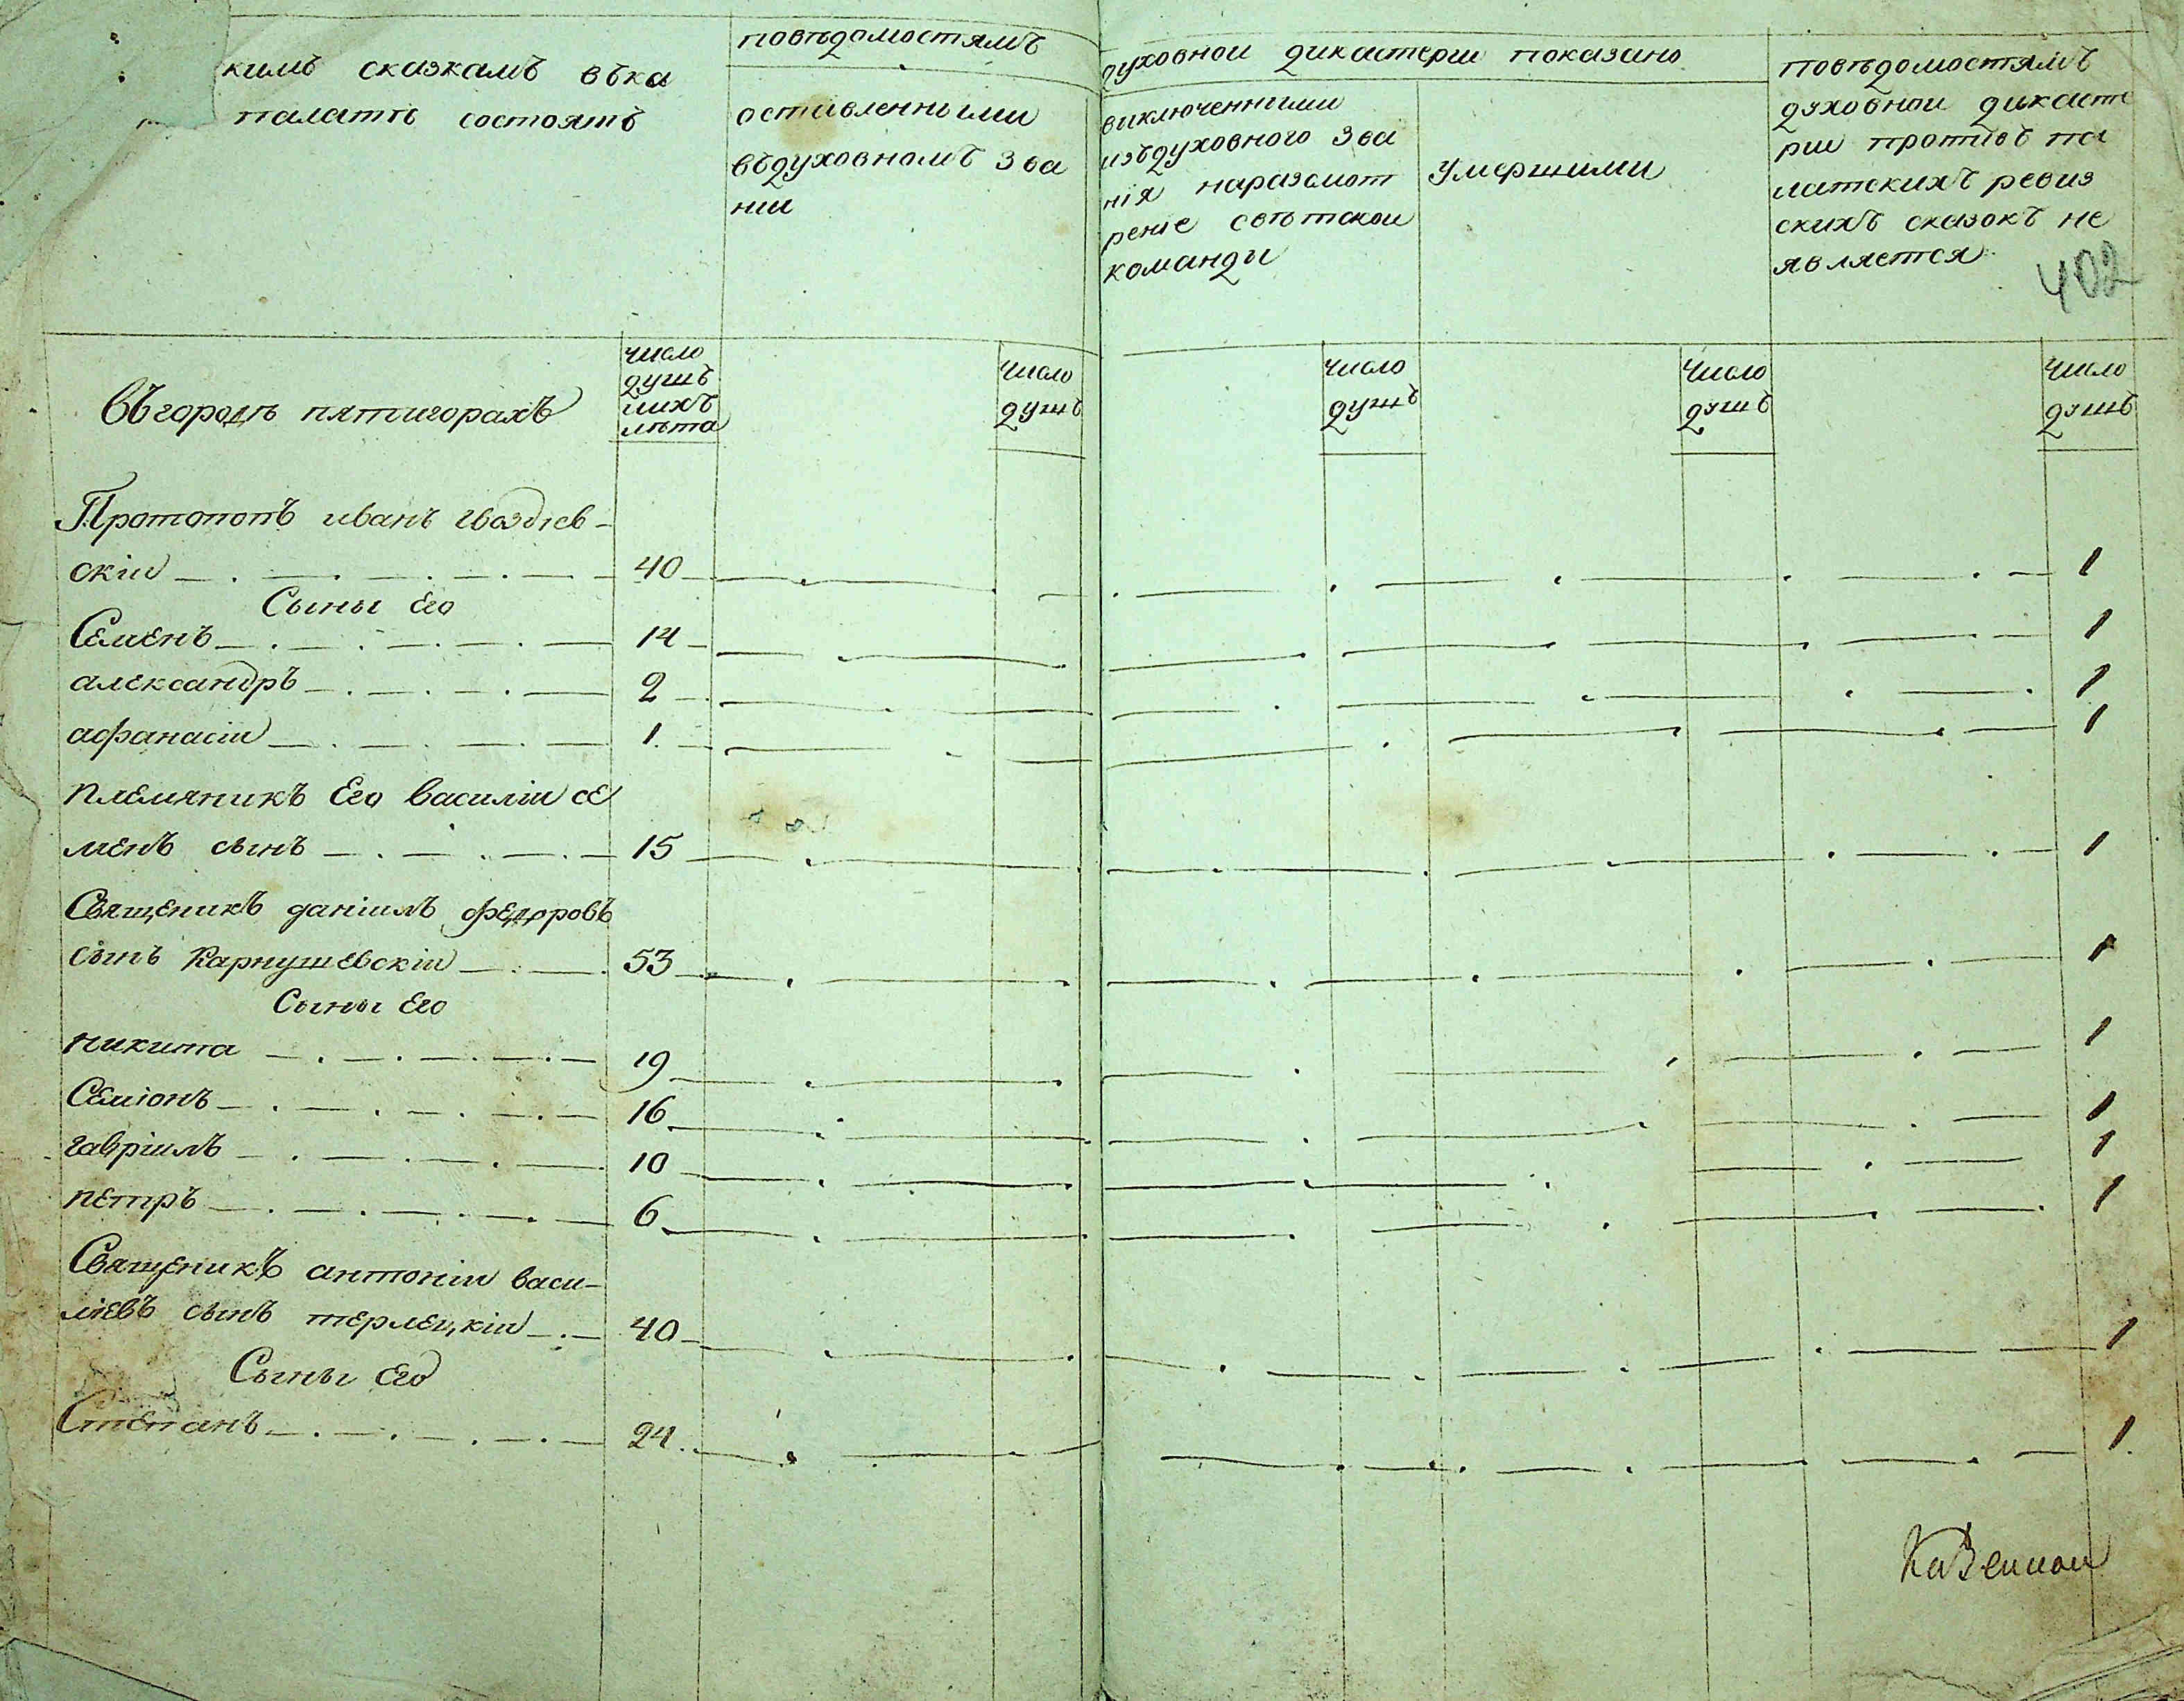 кимъ сказкамъ въка
палатѣ состоятъ
повѣдомостямъ
оставленными
въдуховномъ зва
нии
духовнои дикастерии показано
виключенними
изъдуховного зва
нiя наразсмот
ренiе свѣтскои
команды
умершими
повѣдомостямъ
духовнои дикасте
рии противъ па
латскихъ ревиз
скихъ сказокъ не
является
402
Въгородѣ пятигорахъ
число
душъ
ихъ
лѣта
число
душъ
число
душъ
число
душъ
число
душъ
Протопопъ иванъ гвоздiев-
скiи 40 1
Сыны его
Семенъ 14 1
александръ 2 1
афанасiи 1 1
племяникъ Его василiи се
менъ сынъ 15 1
Священикъ данiилъ федоровъ
сынъ Карпушевскiи 53 1
Сыны его
никита 19 1
Семiонъ 16 1
гаврiилъ 10 1
петръ 6 1
Священикъ антонiи васи-
лiевъ сынъ терлецкiи 40 1
Сыны Его
Степанъ 24 1
Казеннои